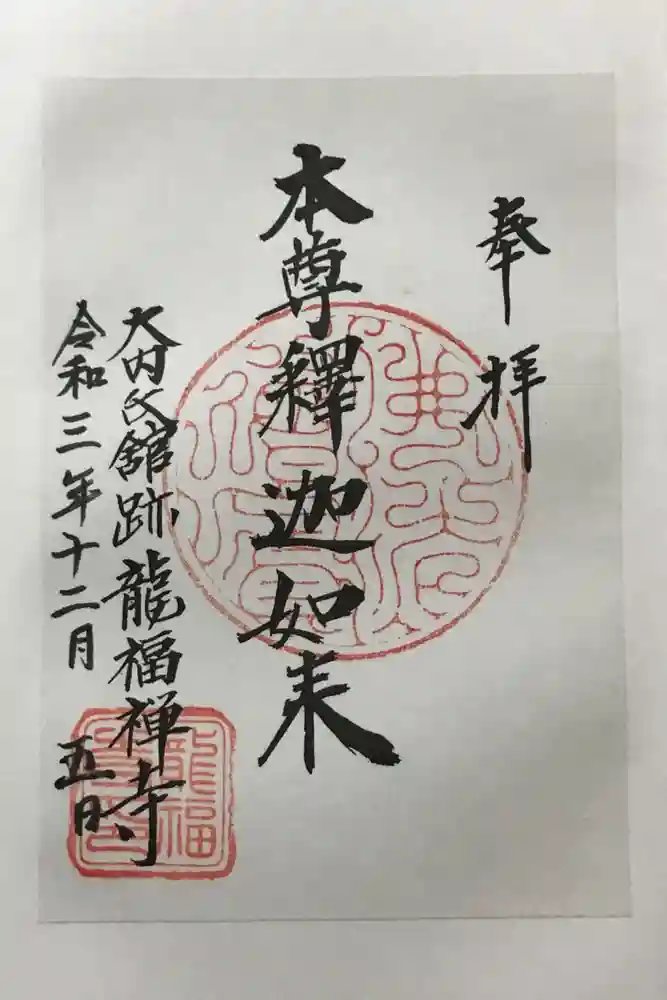 奉拝
本尊釋迦如来
大内氏館跡龍福禅寺
令和三年十二月五日